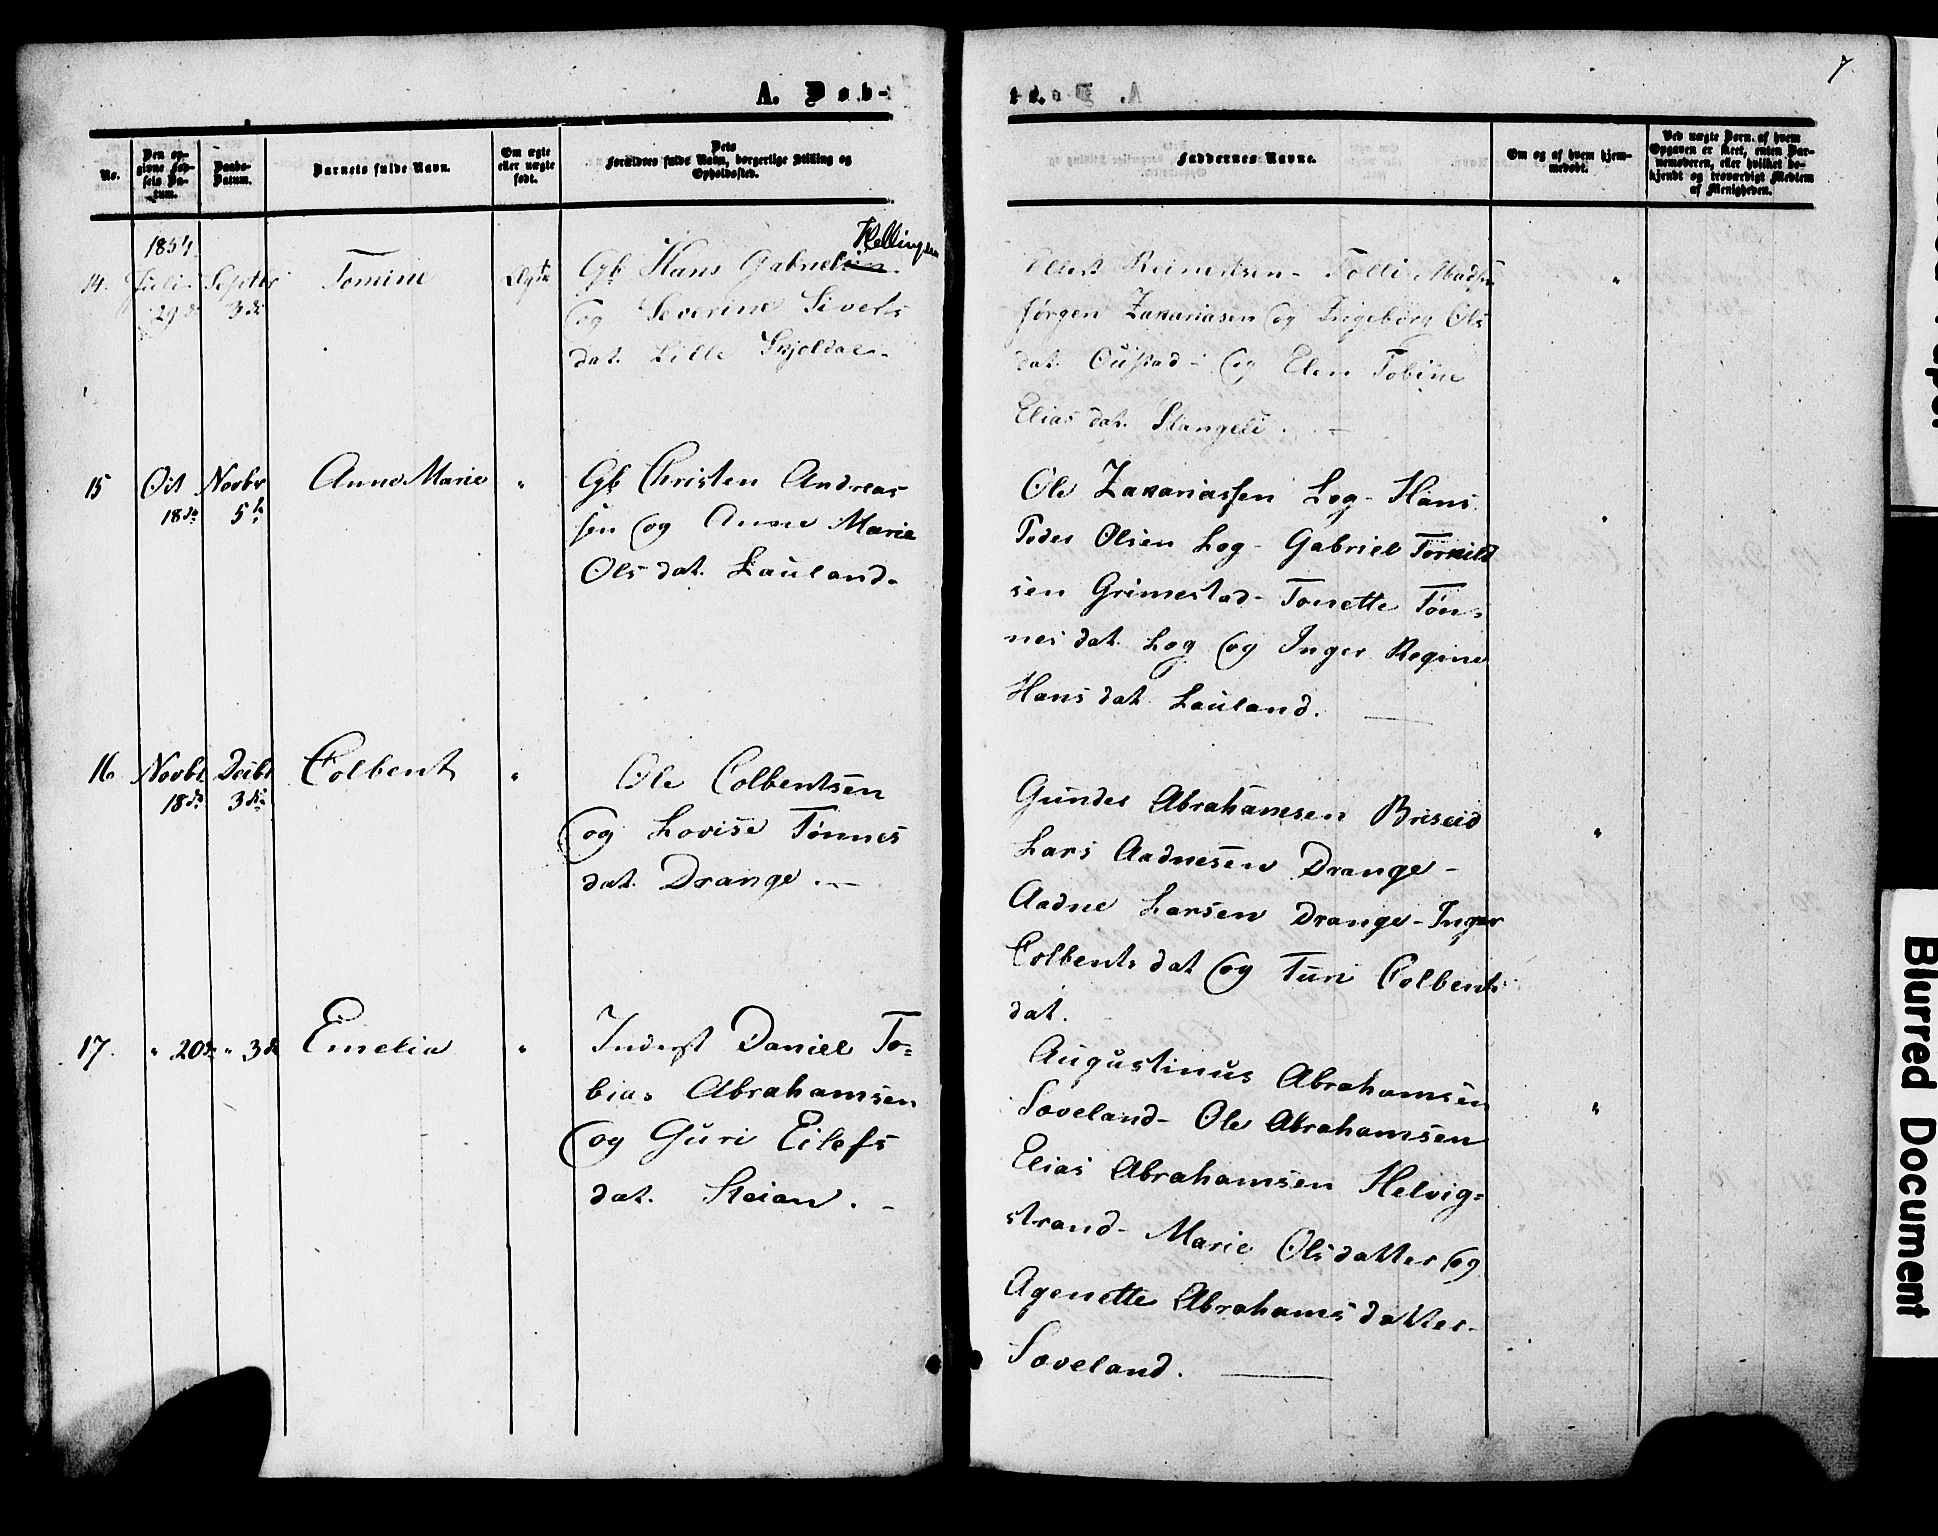 7
A. Døb-
te.
No.
Den op-
givne Fød-
sels Da-
tum.
Daabs-
Datum.
Barnets fulde Navn.
Om ægte
eller uægte
født.
Dets
Forældres fulde Navn, borgerlige Stilling og
Opholdssted.
Faddernes Navne.
Om og af hvem hjem-
medøbt.
Ved uægte Børn, af hvem
Opgaven er skeet, enten Bar-
nemoderen, eller hvilket be-
kjendt og troværdigt Medlem
af Menigheden.
1854
14. Juli 29de Septbr 3de Tomine Ægte
Gb Hans Gabriel
og Severine Siverts
dat. Lille Skjeldal
Reinertsen - Tolli Mads
Jørgen Zakariasen og Ingeborg Ols
dat. - og Elen Tobine
Elias dat. Stangeli.
15 Oct 18de Novbr 5te Anne Marie "
Gb Christen Andreas
sen og Anne Marie
Ols dat. Lauland.
Ole Zakariassen Log - Hans
Peder Olsen Log - Gabriel Torkild
sen Grimestad - Tonette Tøn-
nes dat. Log og Inger Regine
Hans dat. Lauland. "
16 Novbr 18de Decbr 3die Colbent "
Ole Colbentsen
og Lovise Tønnes
dat. Drange.
Gunder Abrahamsen Briseid
Lars Aadnesen Drange -
Aadne Larsen Drange - Inger
Colbents dat og Turi Colbents
dat. "
17. " 20de " 3de Emelia "
Inderst Daniel To=
bias Abrahamsen
og Guri Eilefs
dat. Steian.
Augustinus Abrahamsen
Soveland - Ole Abrahamsen
Elias Abrahamsen Helvig=
strand - Marie Olsdatter og
Agenette Abrahamsdatter
Soveland. "
Blurred Document